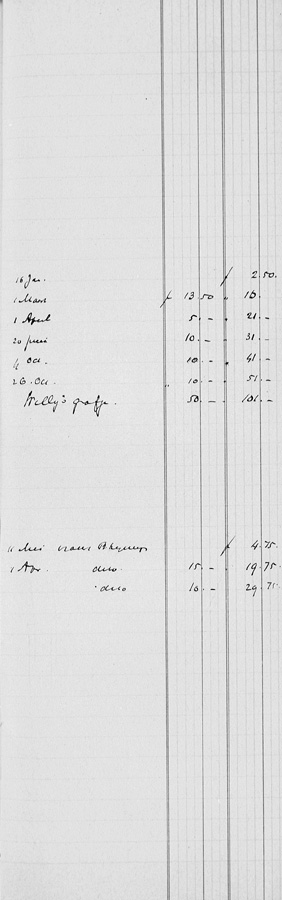 16 Jan. ƒ 2.50.
1 Maart ƒ 13.50 „ 16.
1 April 5.- „ 21.-
20 juni 10.- „ 31.-
4 Oct. 10.- „ 41.-
26 Oct. „ 10.- „ 51.-
Willy's grafje. 50.- „ 101.-
11 Mei ƒ 4.75.
1 Apr. dito. 15.- „ 19.75.
dito 10.- „ 29.75.